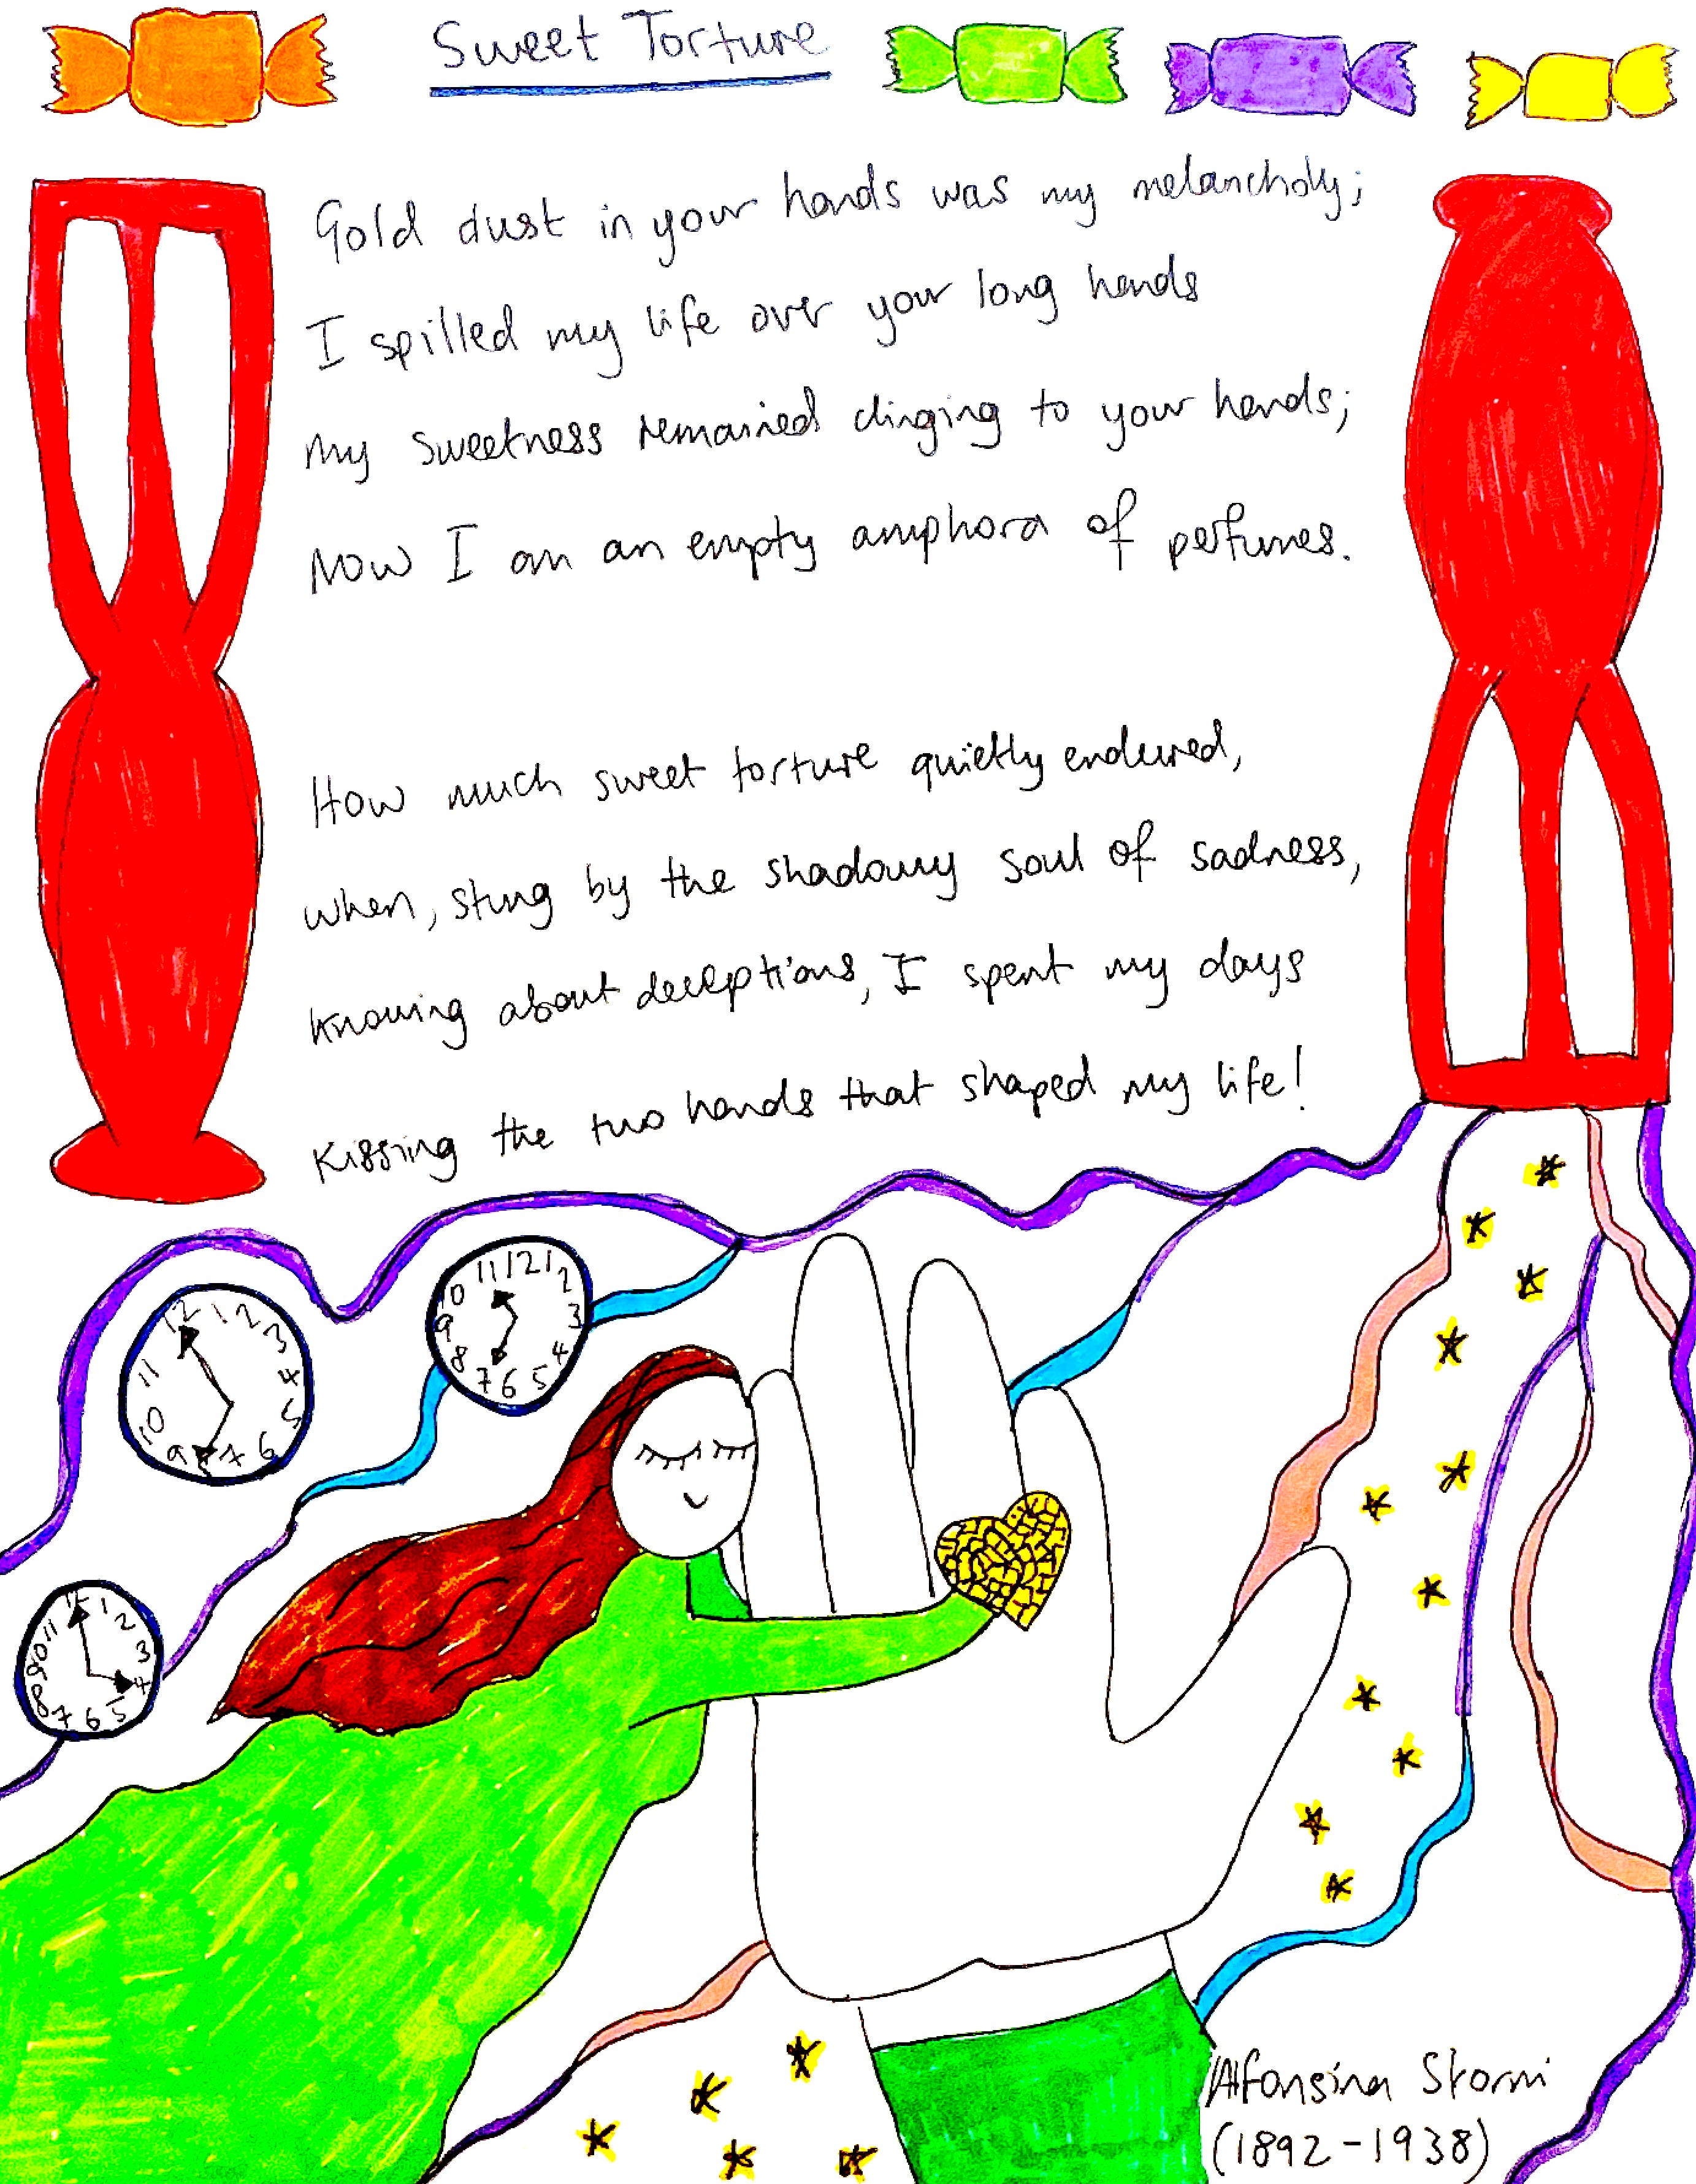 Sweet Torture
Gold dust in your hands was my melancholy;
I spilled my life over your long hands
My sweetness remained clinging to your hands;
Now I am an empty amphora of perfumes.
How much sweet torture quietly endured,
when, stung by the shadowy soul of sadness,
knowing about deceptions, I spent my days
kissing the two hands that shaped my life!
12 1 2 3 4 5 6 7 9 10 11
12 1 2 3 4 5 6 7 8 9 10 11
1 2 3 4 5 6 7 8 9 10 11
Alfonsina Storni
(1892-1938)